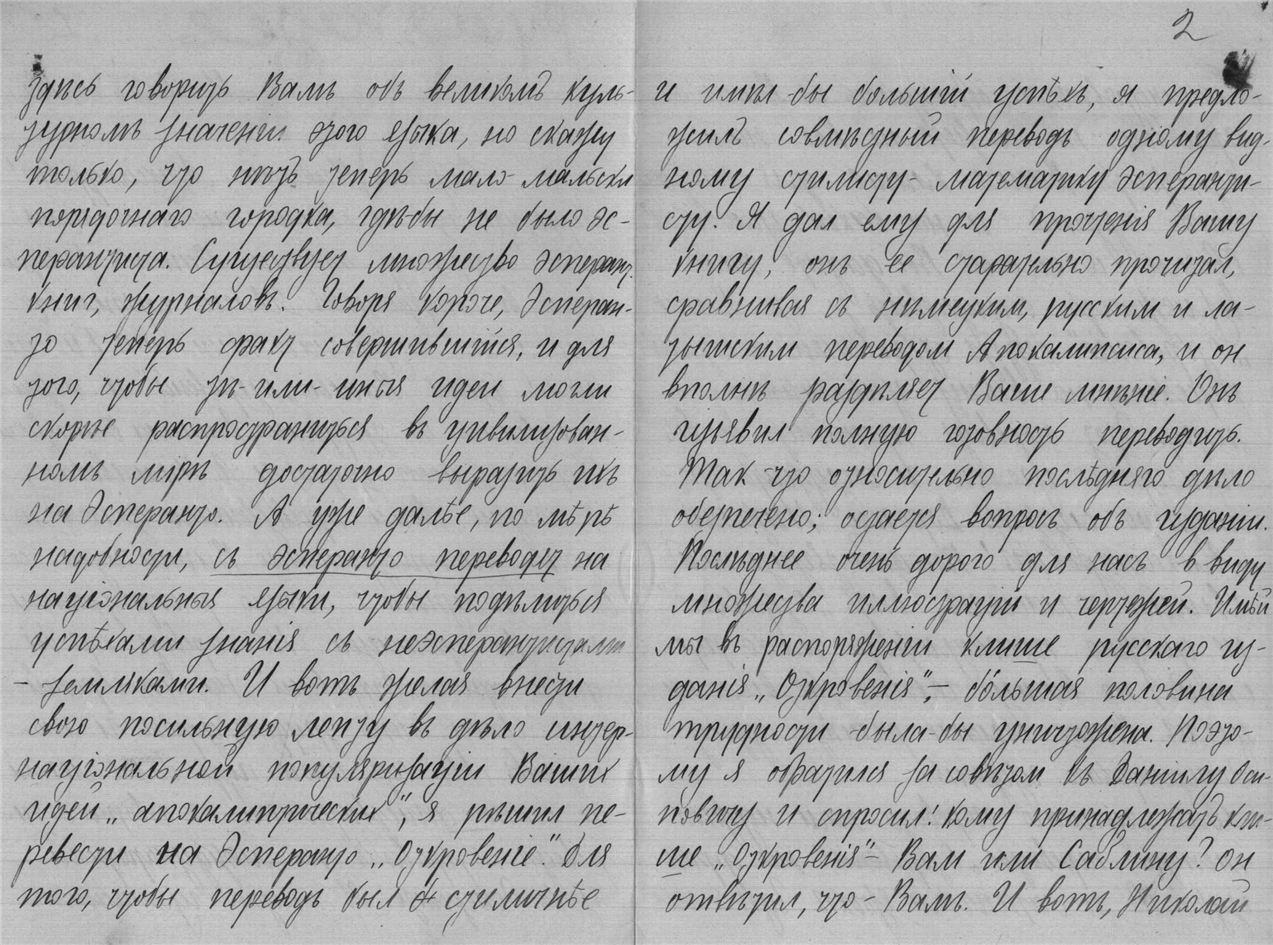 2
здѣсь говорить Вамъ объ великомъ куль-
турномъ значеніи этого языка, но скажу
только, что нѣтъ теперь мало-мальски
порядочнаго городка, гдѣ бы не было эс-
перантиста. Существует множество эсперант.
книг, журналовъ. Говоря короче, Эсперан-
то теперь факт совершившійся, и для
того, чтобы тѣ-или-иныя идеи могли
скорѣе распространиться въ цивилизован-
номъ мірѣ достаточно выразить ихъ
на Эсперанто. А уже далѣе, по мѣрѣ
надобности, съ эсперанто переводят на
національныя языки, чтобы подѣлиться
успѣхами знанія съ неэсперантистами
- земляками. И вотъ желая внести
свою посильную лепту въ дѣло интер-
національной популяризаціи Вашихъ
идей „апокалиптических", я рѣшил пе-
ревести на Эсперанто „Откровеніе". Для
того, чтобы переводъ был стиличнѣе
и имѣл-бы большій успѣхъ, я предло-
жилъ совмѣстный переводъ одному вид-
ному стилисту-математику эсперанти-
сту. Я дал ему для прочтенія Вашу
книгу, онъ ее старательно прочитал,
сравнивая съ нѣмецким, русским и ла-
тынским переводом Апокалипсиса, и он
вполнѣ раздѣляет Ваше мнѣніе. Онъ
изъявил полную готовность переводить.
Так что относительно послѣдняго дѣло
обезпечено; остается вопросъ объ изданіи.
Послѣднее очень дорого для насъ в виду
множества иллюстрацій и чертежей. Имѣй
мы въ распоряженіи клише русскаго из-
данія „Откровенія", – бóльшая половина
трудности была-бы уничтожена. Поэто-
му я обратился за совѣтом къ Даніилу Оси-
повичу и спросил: кому принадлежатъ кли-
ше „Откровенія" – Вам или Саблину? Он
отвѣтил, что – Вамъ. И вотъ, Николай